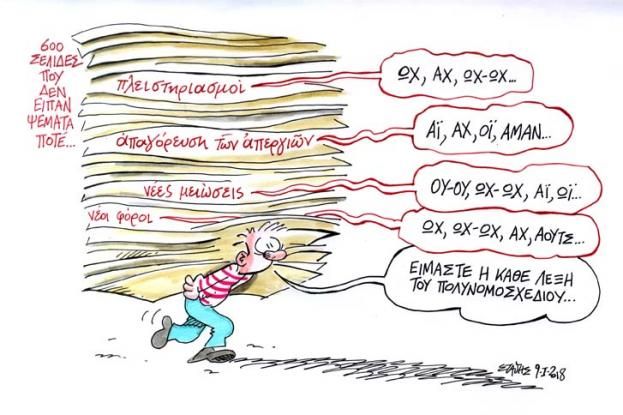 600
ΣΕΛΙΔΕΣ
ΠΟΥ
ΔΕΝ
ΕΙΠΑΝ
ΨΕΜΑΤΑ
ΠΟΤΕ...
πλειστηριασμοί
ΩΧ, ΑΧ, ΩΧ-ΩΧ...
ἀπαγόρευση τῶν ἀπεργιῶν
ΑΪ, ΑΧ, ΟΪ, ΑΜΑΝ...
νέες μειώσεις
ΟΥ-ΟΥ, ΩΧ-ΩΧ, ΑΪ, ΩΪ...
νέοι φόροι
ΩΧ, ΩΧ-ΩΧ, ΑΧ, ΑΟΥΤΣ...
ΕΙΜΑΣΤΕ Η ΚΑΘΕ ΛΕΞΗ
ΤΟΥ ΠΟΛΥΝΟΜΟΣΧΕΔΙΟΥ...
ΣΤΑΘΗΣ 9-Ι-2018